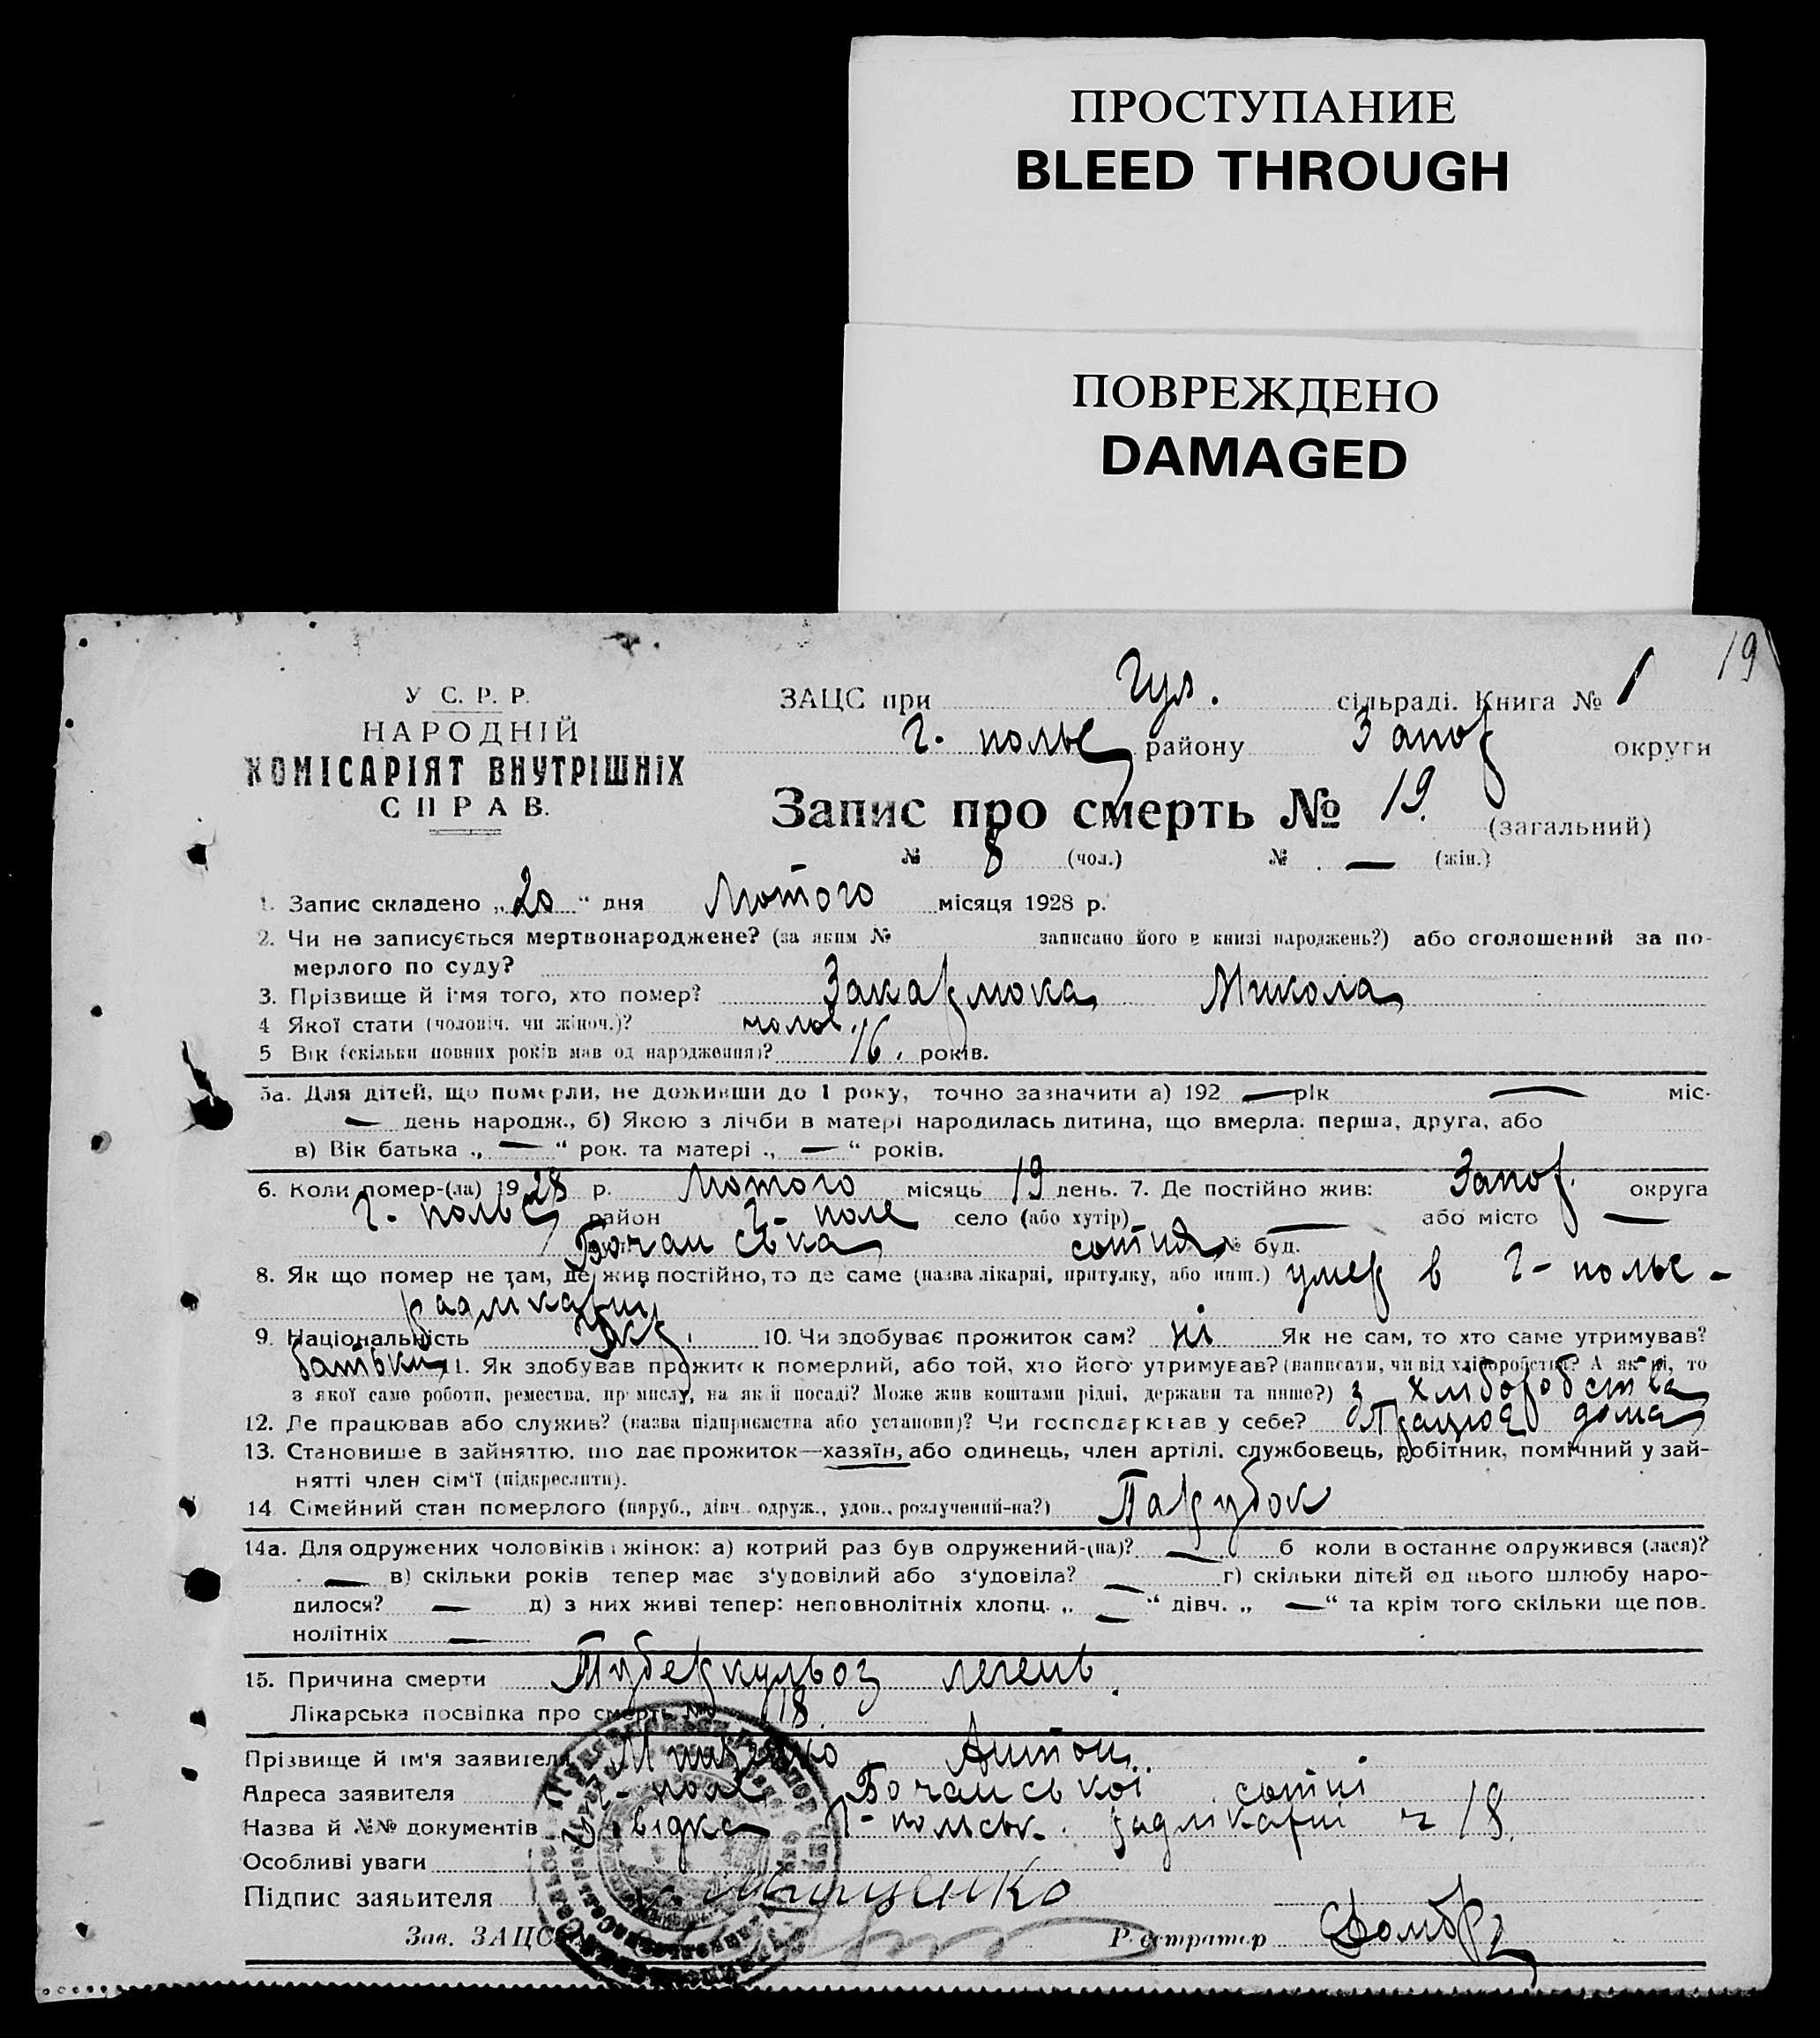 ПРОСТУПАНИЕ
BLEED THROUGH
ПОВРЕЖДЕНО
DAMAGED
19
У С. Р. Р.
НАРОДНІЙ
КОМІСАРІЯТ ВНУТРІШНІХ
СПРАВ.
ЗАЦС при Гул. сільраді. Книга № 1
Г- полье району Запор округи
Запис про смерть № 19. (загальний)
№ 8 (чол.) № — (жін.)
1. Запис складено „20“ дня Лютого місяця 1928 р.
2. Чи не записується мертвонароджене? (за яким № записано його в книзі народжень?) або оголошений за по-
мерлого по суду?
3. Прізвище й ім'я того, хто помер? Закарлюка Микола
4 Якої стати (чоловіч. чи жіноч.)? чолов.
5 Вік (скільки повних років мав од народження)? 16. років.
5а. Для дітей, що померли, не доживши до 1 року, точно зазначити а) 192 — рік — міс.
— день народж., б) Якою з лічби в матері народилась дитина, що вмерла: перша, друга, або
в) Вік батька „ — “ рок. та матері „ — “ років.
6. Коли помер-(ла) 1928 р. Лютого місяць 19 день. 7. Де постійно жив: Запор. округа
Г- полье район Г- поле село (або хутір) або місто —
Бочанська сотня № буд. —
8. Як що помер не там, де жив постійно, то де саме (назва лікарні, притулку, або инш.) умер в Г- полье -
радлікарні
9. Національність Укр. 10. Чи здобуває прожиток сам? ні Як не сам, то хто саме утримував?
батьки 11. Як здобував прожиток померлий, або той, хто його утримував? (написати, чи від хліборобства? А як ні, то
з якої саме роботи, ремества, промислу, на якій посаді? Може жив коштами рідні, держави та инше?) з хліборобства
12. Де працював або служив? (назва підприємства або установи)? Чи господарював у себе? Працював дома
13. Становище в зайняттю, що дає прожиток—хазяїн, або одинець, член артілі, службовець, робітник, помічний у зай-
нятті член сім'ї (підкреслити).
14 Сімейний стан померлого (паруб., дівч. одруж., удов., розлучений-на?) Парубок
14а. Для одружених чоловіків і жінок: а) котрий раз був одружений-(на)? — б коли в останнє одружився (лася)?
— в) скільки років тепер має з'удовілий або з'удовіла? — г) скільки дітей од цього шлюбу наро-
дилося? — д) з них живі тепер: неповнолітніх хлопц. „ — “ дівч. „ — “ та крім того скільки ще пов-
нолітніх —
15. Причина смерти Туберкульоз легень.
Лікарська посвідка про смерть № 18.
Прізвище й ім'я заявителя Антон
Адреса заявителя Г- поле Бочанської сотні
Назва й №№ документів Г- польськ. радлікарні ч 18.
Особливі уваги
Підпис заявителя Мищенко
Зав. ЗАЦС Реєстратор